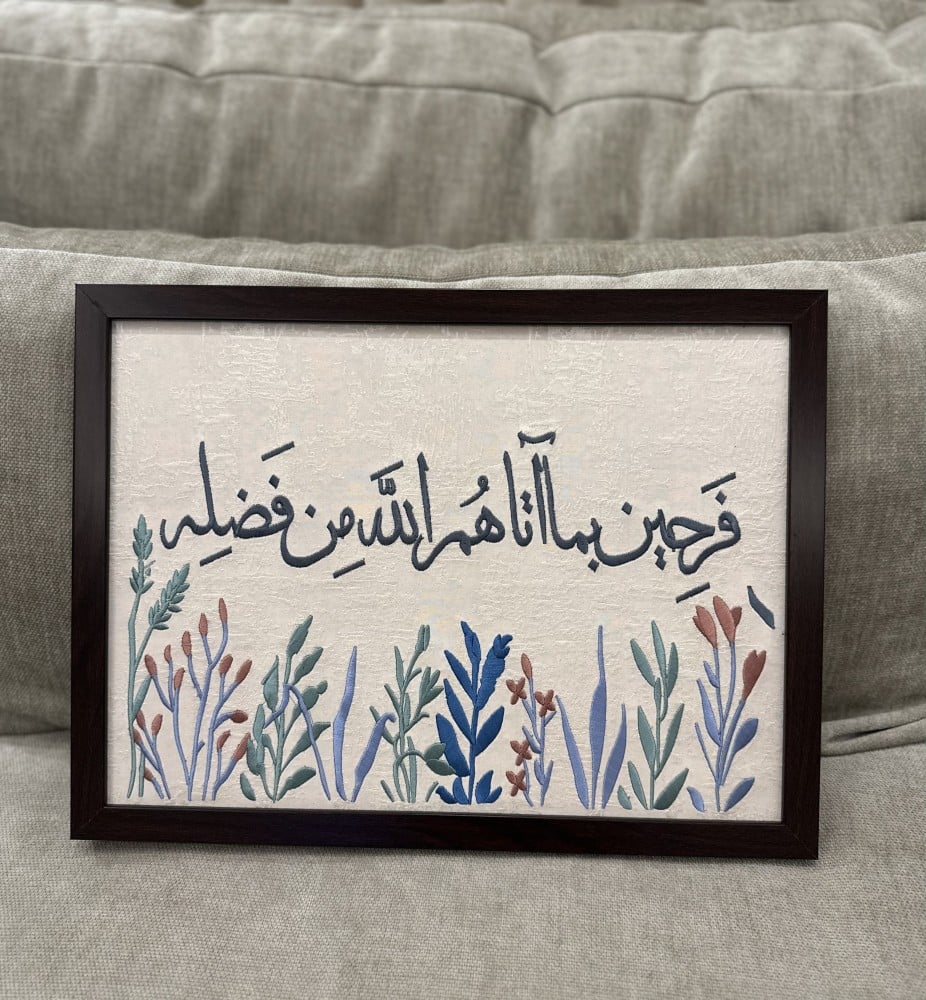 فَرِحِين بما آتاهُم اللَّه مِن فَضلِه